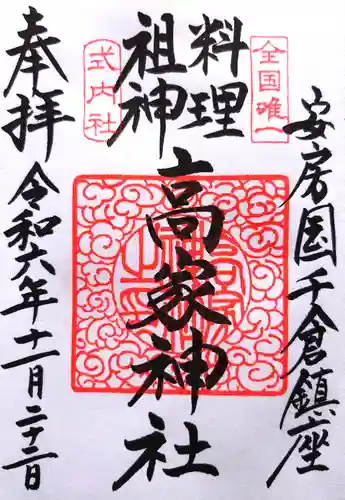 安房国千倉鎮座
全国唯一
料理
祖神
式内社
高家神社
奉拝
令和六年十一月二十二日